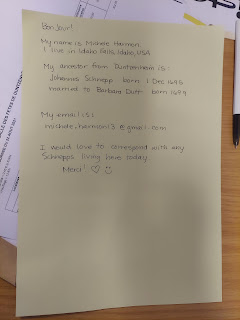 Bonjour!
My name is Michele Harmon.
I live in Idaho Falls, Idaho, USA
My ancestor from Duntzenheim is:
Johannes Schnepp born 1 Dec 1695
married to Barbara Dutt born 1699
My email is:
michele.harmon13@gmail.com
I would love to correspond with any
Schnepps living here today.
Merci! ♡ ☺